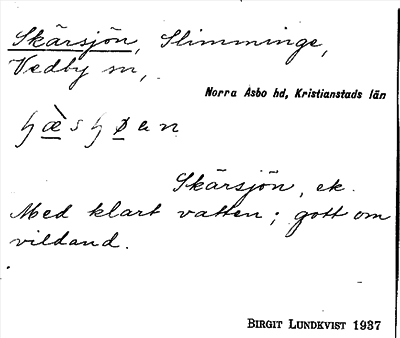 Skärsjön, Slimminge,
Vedby sn,
Norra Åsbo hd, Kristianstads län
Skärsjön, ek.
Med klart vatten; gott om
vildand.
BIRGIT LUNDKVIST 1937